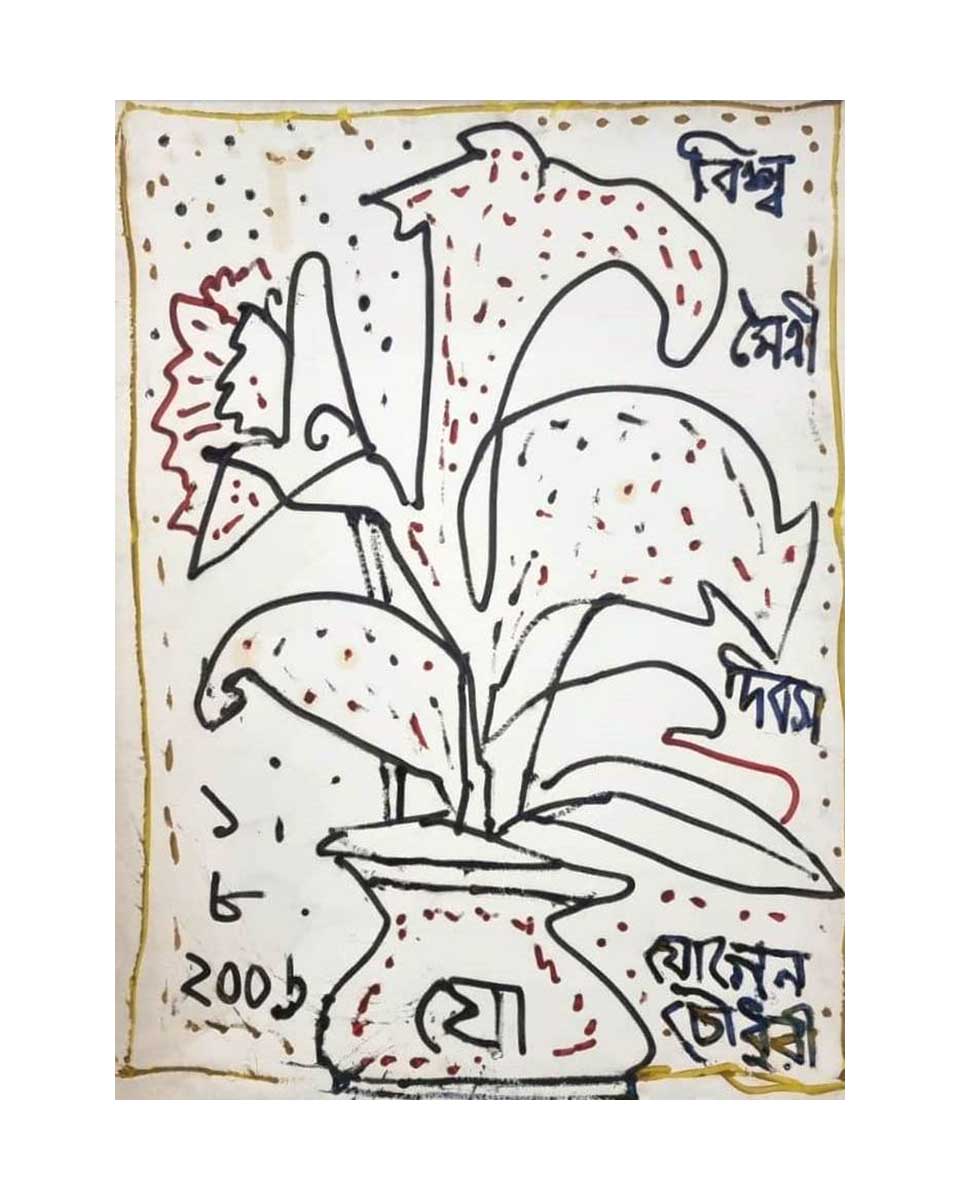 বিশ্ব
মৈত্রী
দিবস
১
৮
২০০৬
যো
যোগেন
চৌধুরী